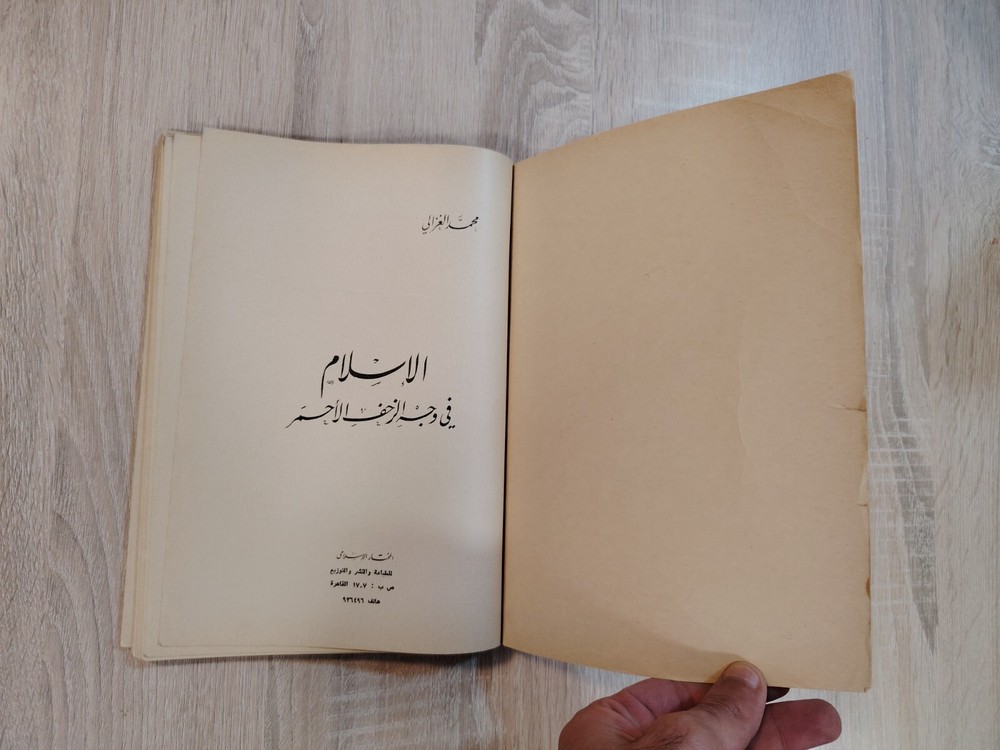 محمَّد الغزالي
الإسْلام
في وجه الزحف الأحمَر
المختار الإسلامي
للطباعة والنشر والتوزيع
ص ب : ١٧٠٧ القاهرة
هاتف ٩٣٦٤٩٦